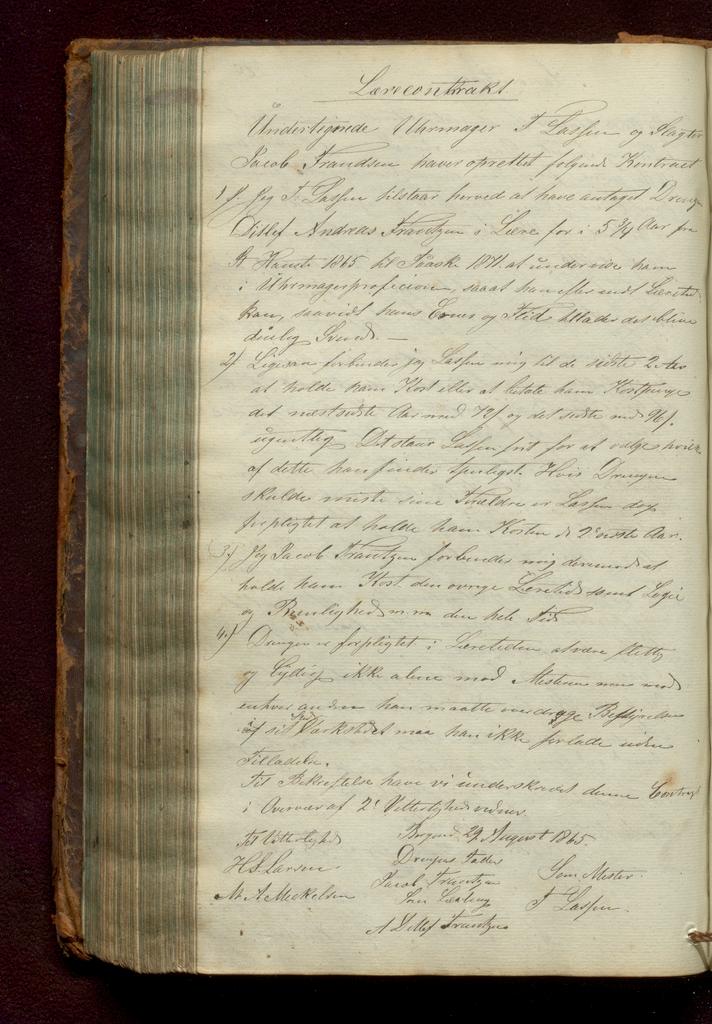 Lærecontrakt
Undertegnede Uhrmager F Lassen og Slagter
Jacob Frandsen haver oprettet følgende Kontract
1/ Jeg F. Lassen tilstaar herved at have antaget Drengen
Ditlef Andreas Frantzen i Lære for i 5 3/4 Aar fra
St Hansti 1865 til Paaske 1871. at undervise ham
i Uhrmagerprofecion, saaat han efter endt Læretid
kan, saavidt hans Evner og Flid tillader det blive
duelig Svend. —
2/ Ligesaa forbinder jeg Lassen mig til de sidste 2 Aar
at holde ham Kost eller at betale ham Kostpenge
det næstsidste Aar med og det sidste med 96/.
ugentlig Det staar Lassen frit for at vælge hvilken
af dette han finder Hvis Drengen
skulde miste sine Forældre er Lassen dog
forpligtet at holde ham Kosten de 2 sidste Aar.
3/ Jeg Jacob Frantzen forbinder mig derimod at
holde ham Kost den øvrige Læretid samt Logie
og Reenlighed m.m den hele Tid
4/ Drengen er forpligtet i Læretiden at være flittig
og lydig ikke alene mod Mesteren men mod
enhver anden han maatte overdrage Bestyrelsen
af sit Værksted maa han ikke forlade uden
Tilladelse.
Til Bekræftelse have vi underskrevet denne Contract
i Overvær af 2 Vitterlighedsvidner
Til Vitterlighed Borgund 29 August 1865.
H L Larsen Drengens Fader Som Mester.
M A Meckelsen Jacob Frantzen F Lassen.
Som Lærling
A Ditlef Frantzen